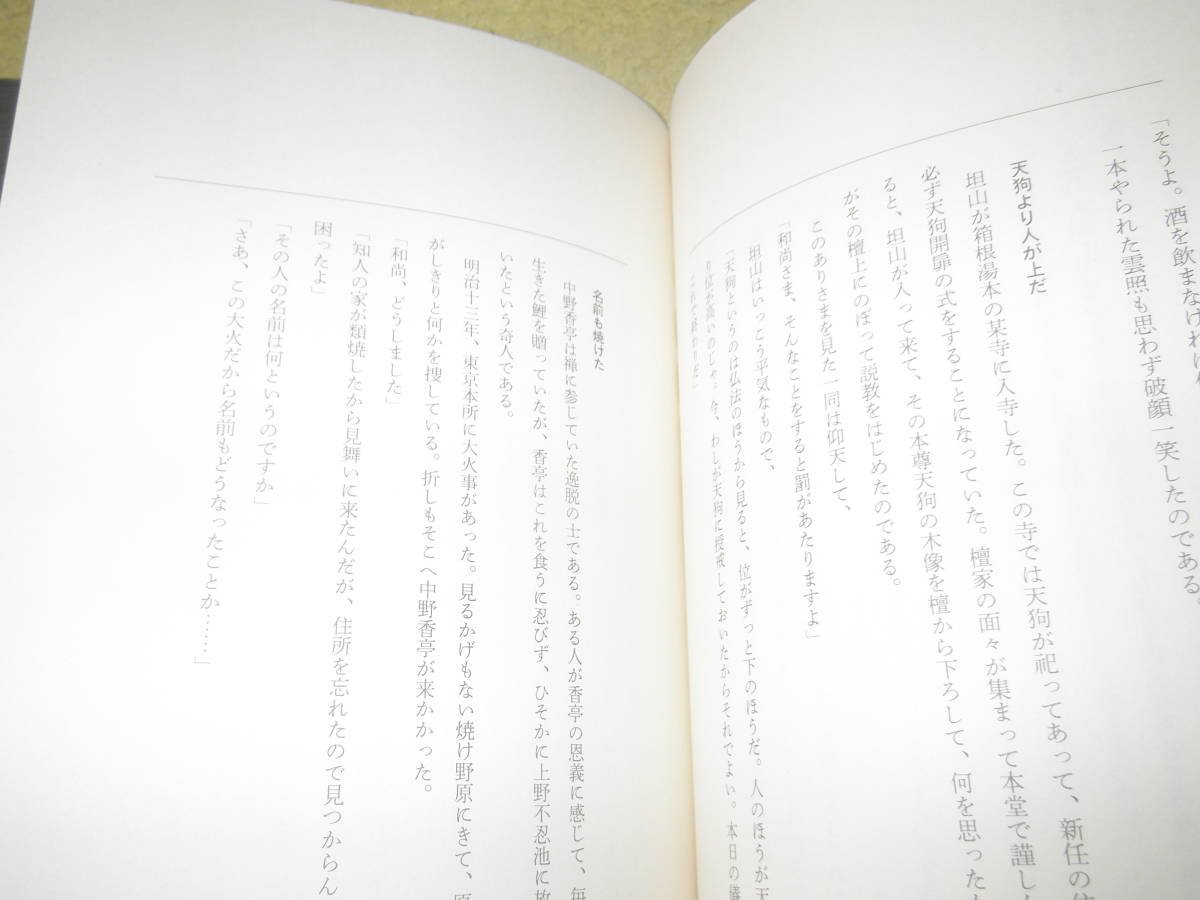 「そうよ。酒を飲まなければ人
一本やられた雲照も思わず破顔一笑したのである。
天狗より人が上だ
坦山が箱根湯本の某寺に入寺した。この寺では天狗が祀ってあって、新任の住
必ず天狗開扉の式をすることになっていた。檀家の面々が集まって本堂で謹しん
ると、坦山が入って来て、その本尊天狗の木像を檀から下ろして、何を思ったか
がその檀上にのぼって説教をはじめたのである。
このありさまを見た一同は仰天して、
「和尚さま、そんなことをすると罰があたりますよ」
坦山はいっこう平気なもので、
「天狗というのは仏法のほうから見ると、位がずっと下のほうだ。人のほうが天
り位が高いのじゃ。今、わしが天狗に授戒しておいたからそれでよい。本日の儀
これで終わりだ」
名前も焼けた
中野香亭は禅に参じていた逸脱の士である。ある人が香亭の恩義に感じて、毎
生きた鯉を贈っていたが、香亭はこれを食うに忍びず、ひそかに上野不忍池に放
いたという奇人である。
明治十三年、東京本所に大火事があった。見るかげもない焼け野原にきて、原
がしきりと何かを捜している。折しもそこへ中野香亭が来かかった。
「和尚、どうしました」
「知人の家が類焼したから見舞いに来たんだが、住所を忘れたので見つからん
困ったよ」
「その人の名前は何というのですか」
「さあ、この大火だから名前もどうなったことか……」